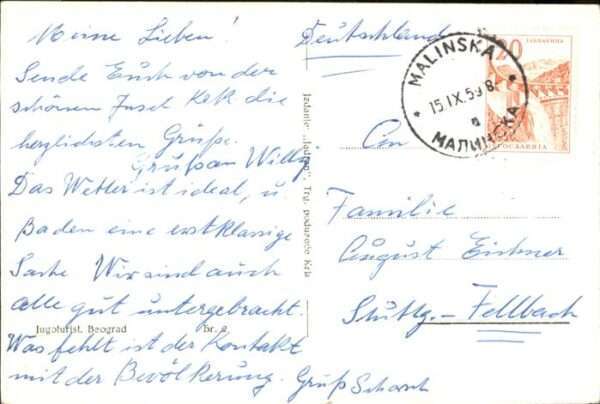 Meine Lieben!
Sende Euch von der
schönen Insel Krk die
herzlichsten Grüße.
Gruß an Willy
Das Wetter ist ideal, u
Baden eine erstklassige
Sache Wir sind auch
alle gut untergebracht.
Was fehlt ist der Kontakt
mit der Bevölkerung. Gruß
Jugoturist, Beograd
Br. 2
Izdanje
Trg. poduzeće Krk
Deutschland
20
JUGOSLAVIJA
ЈУГОСЛАВИЈА
MALINSKA
15.IX.59.8
a
МАЛИНСКА
An
Familie
August Eichner
Stuttg.-Fellbach